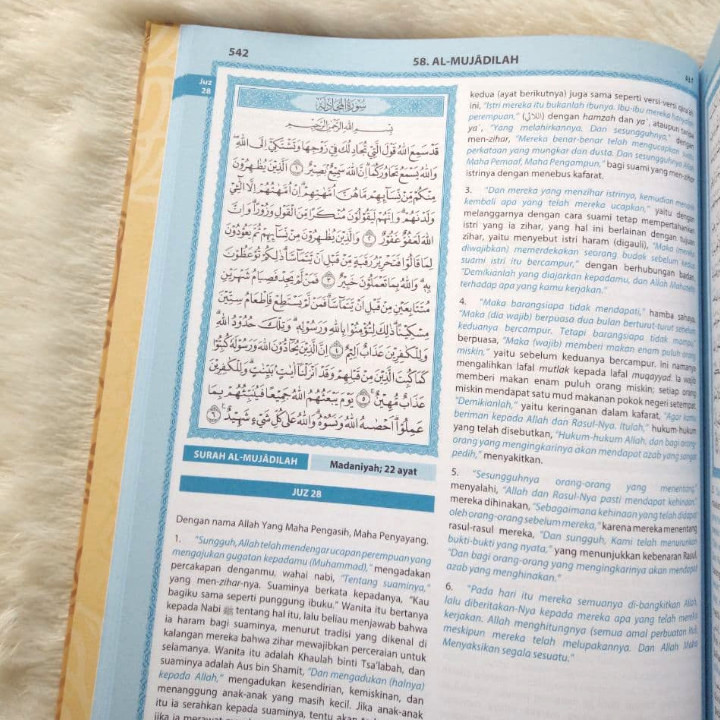 542
58. AL-MUJĀDILAH
Juz
28
سورة المجادلة
بسم الله الرحمن الرحيم
قد سمع الله قول التي تجادلك في زوجها وتشتكي إلى الله
والله يسمع تحاوركما إن الله سميع بصير ١ الذين يظهرون
منكم من نسائهم ما هن أمهتهم إن أمهتهم إلا الئي
ولدنهم وإنهم ليقولون منكرا من القول وزورا وإن
الله لعفو غفور ٢ والذين يظهرون من نسائهم ثم يعودون
لما قالوا فتحرير رقبة من قبل أن يتماسا ذلكم توعظون
به والله بما تعملون خبير ٣ فمن لم يجد فصيام شهرين
متتابعين من قبل أن يتماسا فمن لم يستطع فإطعام ستين
مسكينا ذلك لتؤمنوا بالله ورسوله وتلك حدود الله
وللكفرين عذاب أليم ٤ إن الذين يحادون الله ورسوله كبتوا
كما كبت الذين من قبلهم وقد أنزلنا ءايت بينت وللكفرين
عذاب مهين ٥ يوم يبعثهم الله جميعا فينبئهم بما
عملوا أحصىه الله ونسوه والله على كل شيء شهيد ٦
SURAH AL-MUJĀDILAH
Madaniyah; 22 ayat
JUZ 28
Dengan nama Allah Yang Maha Pengasih, Maha Penyayang.
1. "Sungguh, Allah telah mendengar ucapan perempuan yang
mengajukan gugatan kepadamu (Muhammad)," mengadakan
percakapan denganmu, wahai nabi, "Tentang suaminya,"
yang men-zihar-nya. Suaminya berkata kepadanya, "Kau
bagiku sama seperti punggung ibuku." Wanita itu bertanya
kepada Nabi ﷺ tentang hal itu, lalu beliau menjawab bahwa
ia haram bagi suaminya, menurut tradisi yang dikenal di
kalangan mereka bahwa zihar mewajibkan perceraian untuk
selamanya. Wanita itu adalah Khaulah binti Tsa'labah, dan
suaminya adalah Aus bin Shamit, "Dan mengadukan (halnya)
kepada Allah," mengadukan kesendirian, kemiskinan, dan
menanggung anak-anak yang masih kecil. Jika anak-anak
itu ia serahkan kepada suaminya, tentu akan
jika ia merawat
kedua (ayat berikutnya) juga sama seperti versi-versi
ini, "Istri mereka itu bukanlah ibunya. Ibu-ibu mereka hanyalah
perempuan," (اللائي) dengan hamzah dan ya', ataupun tanpa
ya', "Yang melahirkannya. Dan sesungguhnya," dengan
men-zihar, "Mereka benar-benar telah mengucapkan
perkataan yang mungkar dan dusta. Dan sesungguhnya Allah
Maha Pemaaf, Maha Pengampun," bagi suami yang men-zihar
istrinya dengan menebus kafarat.
3. "Dan mereka yang menzihar istrinya, kemudian menarik
kembali apa yang telah mereka ucapkan," yaitu dengan
melanggarnya dengan cara suami tetap mempertahankan
istri yang ia zihar, yang hal ini berlainan dengan tujuan
zihar, yaitu menyebut istri haram (digauli), "Maka (mereka
diwajibkan) memerdekakan seorang budak sebelum kedua
suami istri itu bercampur," dengan berhubungan badan,
"Demikianlah yang diajarkan kepadamu, dan Allah Mahateliti
terhadap apa yang kamu kerjakan."
4. "Maka barangsiapa tidak mendapati," hamba sahaya,
"Maka (dia wajib) berpuasa dua bulan berturut-turut sebelum
keduanya bercampur. Tetapi barangsiapa tidak mampu"
berpuasa, "Maka (wajib) memberi makan enam puluh orang
miskin," yaitu sebelum keduanya bercampur. Ini namanya
mengalihkan lafal mutlak kepada lafal muqayyad. Ia wajib
memberi makan enam puluh orang miskin; setiap orang
miskin mendapat satu mud makanan pokok negeri setempat.
"Demikianlah," yaitu keringanan dalam kafarat, "Agar kamu
beriman kepada Allah dan Rasul-Nya. Itulah," hukum-hukum
yang telah disebutkan, "Hukum-hukum Allah, dan bagi orang-
orang yang mengingkarinya akan mendapat azab yang sangat
pedih," menyakitkan.
5. "Sesungguhnya orang-orang yang menentang"
menyalahi, "Allah dan Rasul-Nya pasti mendapat kehinaan"
mereka dihinakan, "Sebagaimana kehinaan yang telah didapat
oleh orang-orang sebelum mereka," karena mereka menentang
rasul-rasul mereka, "Dan sungguh, Kami telah menurunkan
bukti-bukti yang nyata," yang menunjukkan kebenaran Rasul,
"Dan bagi orang-orang yang mengingkarinya akan mendapat
azab yang menghinakan."
6. "Pada hari itu mereka semuanya di-bangkitkan Allah,
lalu diberitakan-Nya kepada mereka apa yang telah mereka
kerjakan. Allah menghitungnya (semua amal perbuatan itu),
meskipun mereka telah melupakannya. Dan Allah Maha
Menyaksikan segala sesuatu."